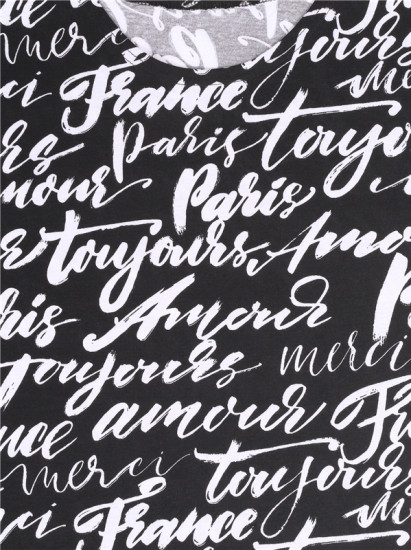 merci toujours
ci France me
Paris toujours
mour Paris
toujours, Amo
Paris Amour
toujours merci
amour Fran
nce merci toujours
ci France Am